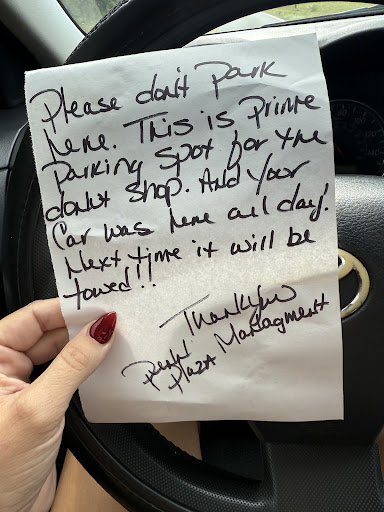 Please don't park
here. This is Prime
parking spot for the
donut shop. And your
Car was here all day!
Next time it will be
towed!!
Thankyou
Plaza Managment